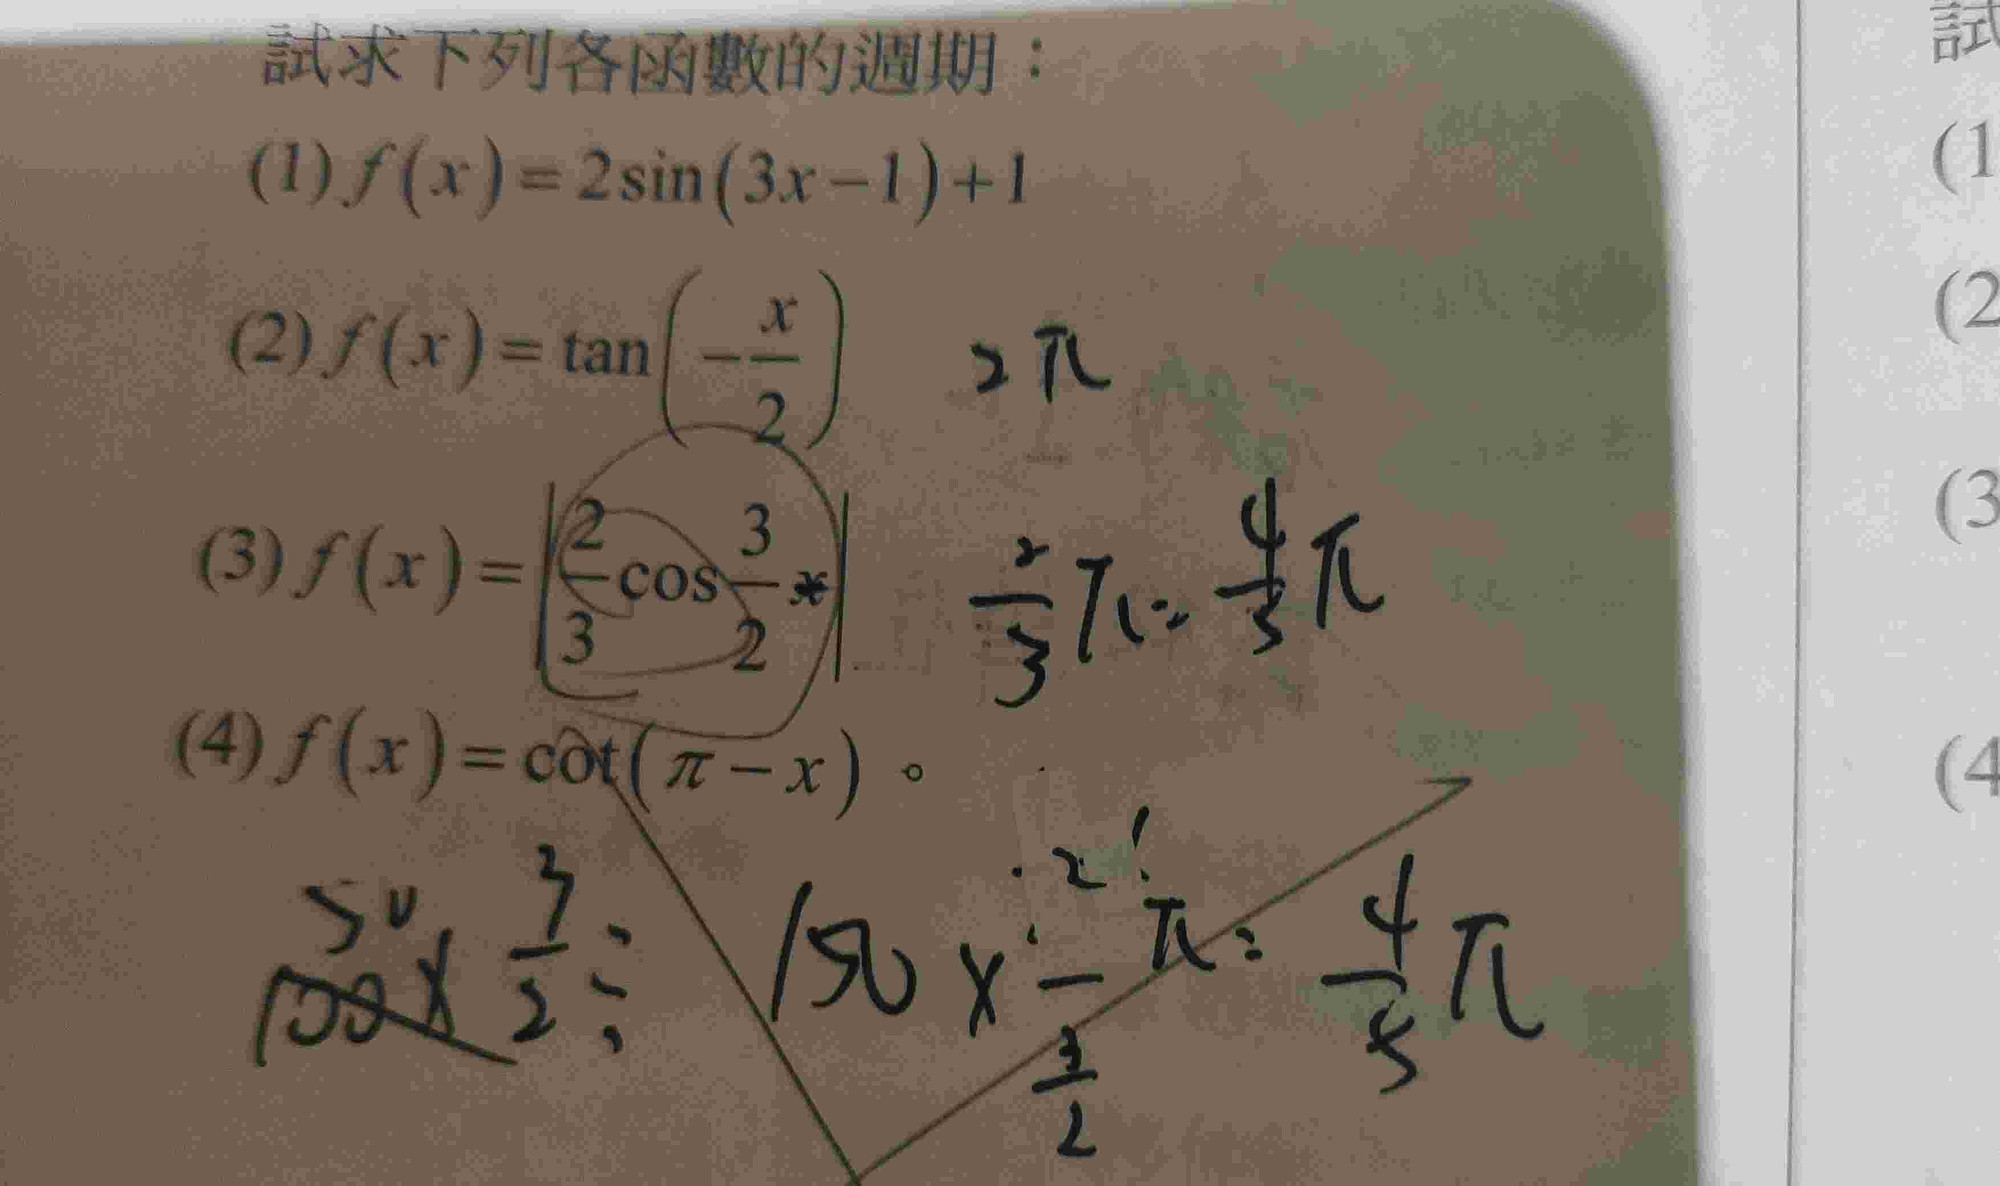 試求下列各函數的週期：
(1) f(x) = 2sin(3x−1)+1
(2) f(x) = tan(−x/2) 2π
(3) f(x) = |2/3 cos 3/2 x| 2/3 π = 4/3 π
(4) f(x) = cot(π−x)。
50
100 × 3/2 = 150 × 2π/(3/2) = 4/3 π
試
(1
(2
(3
(4